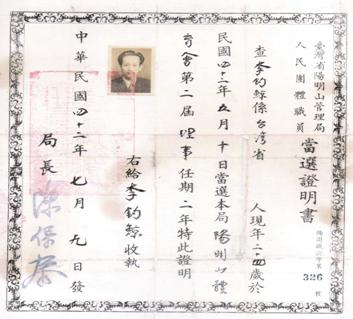 臺灣省陽明山管理局
人民團體職員
當選證明書
326
查李釣鯨係台灣省
人現年二十四歲於
民國四十二年五月十日當選本局陽明山體
育會第二屆理事任期二年特此證明
右給李釣鯨收執
中華民國四十二年七月九日發
局長